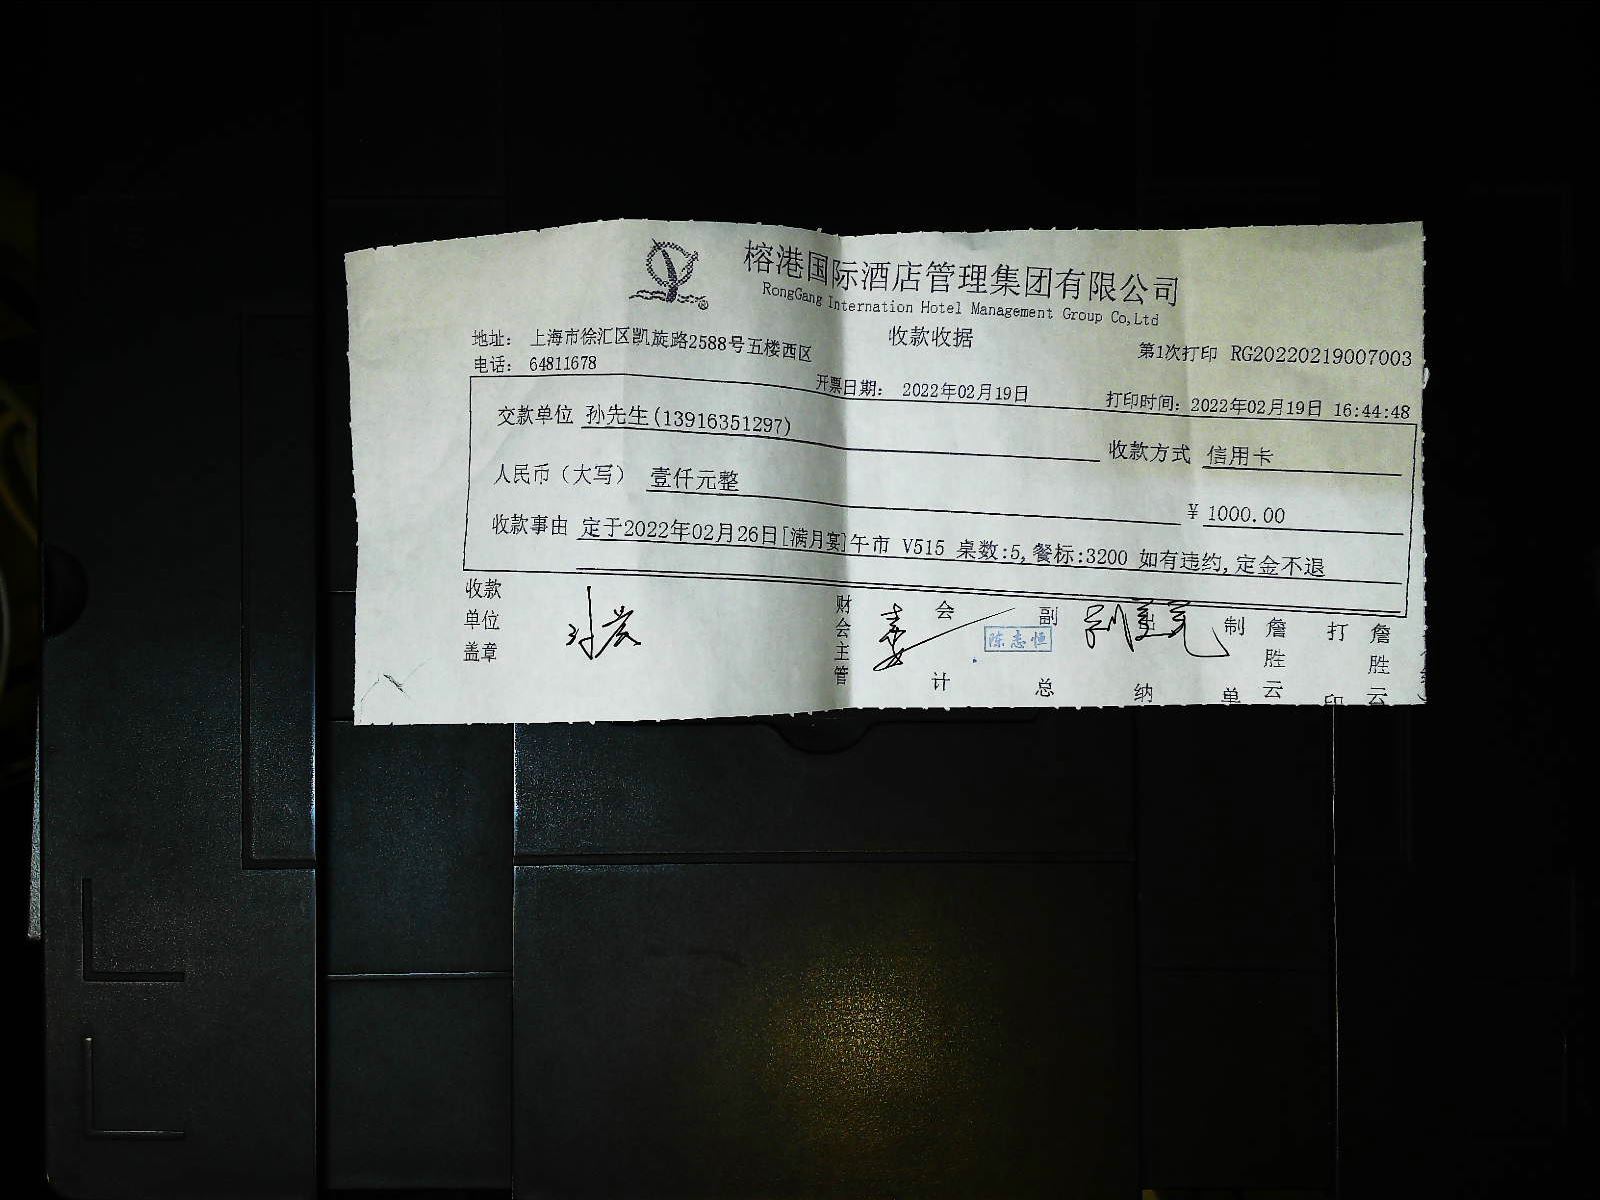 榕港国际酒店管理集团有限公司
RongGang Internation Hotel Management Group Co,Ltd
收款收据
地址： 上海市徐汇区凯旋路2588号五楼西区
第1次打印 RG20220219007003
电话： 64811678
开票日期： 2022年02月19日
打印时间：2022年02月19日 16:44:48
交款单位 孙先生(13916351297)
收款方式 信用卡
人民币（大写） 壹仟元整
¥ 1000.00
收款事由 定于2022年02月26日[满月宴]午市 V515 桌数:5,餐标:3200 如有违约,定金不退
收款单位盖章
财会主管
会计
陈志恒
副总
出纳
制单
詹胜云
打印
詹胜云